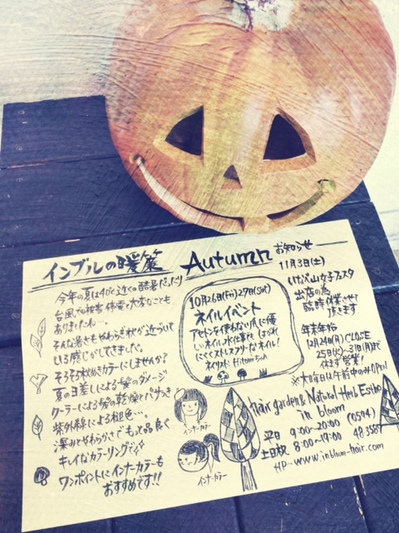 インブルの暖簾
今年の夏は40℃近くの酷暑だったり
台風での被害、停電と大変なことも
ありましたね…
そんな暑さもやわらぎ秋が近づいて
いる感じがしてきました。
そろそろ秋めきカラーにしませんか?
夏の日差しによる髪のダメージ
クーラーによる髪の乾燥とパサつき
紫外線による褪色…
深みとやわらかさでもっと品良く
キレイなカラーリングを
ワンポイントにインナーカラーも
おすすめです!!
Autumn お知らせ
10月26日(Fri) 27日(Sat)
ネイルイベント
アセトンを使わない爪に優
しいネイル
にくくストレスフリーなネイル!
インナーカラー
インナーカラー
11月3日(土)
いけだ山女子フェスタ
出店の為
臨時休業させて
頂きます
年末年始
12月24日(月) CLOSE
25日(火)〜31日(月)まで
休まず営業!
※大晦日は午前中のみOPEN
Hair garden & Natural Hair Esthe
in bloom
平日 9:00~20:00 (0584)
土日祝 8:00~19:00 48.3587
HP…www.inbloom-hair.com